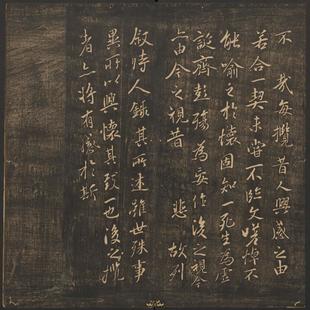 不 哉每攬昔人興感之由
若合一契未嘗不臨文嗟悼不
能喻之於懷固知一死生為虛
誕齊彭殤為妄作後之視今
亦由今之視昔 悲 故列
敘時人錄其所述雖世殊事
異所以興懷其致一也後之攬
者亦將有感於斯